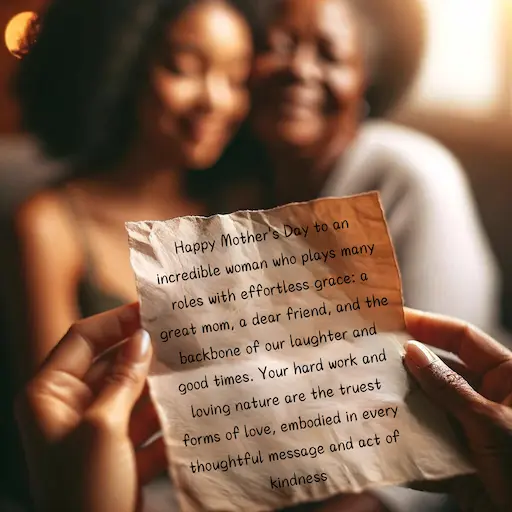 Happy Mother's Day to an
incredible woman who plays many
roles with effortless grace: a
great mom, a dear friend, and the
backbone of our laughter and
good times. Your hard work and
loving nature are the truest
forms of love, embodied in every
thoughtful message and act of
kindness